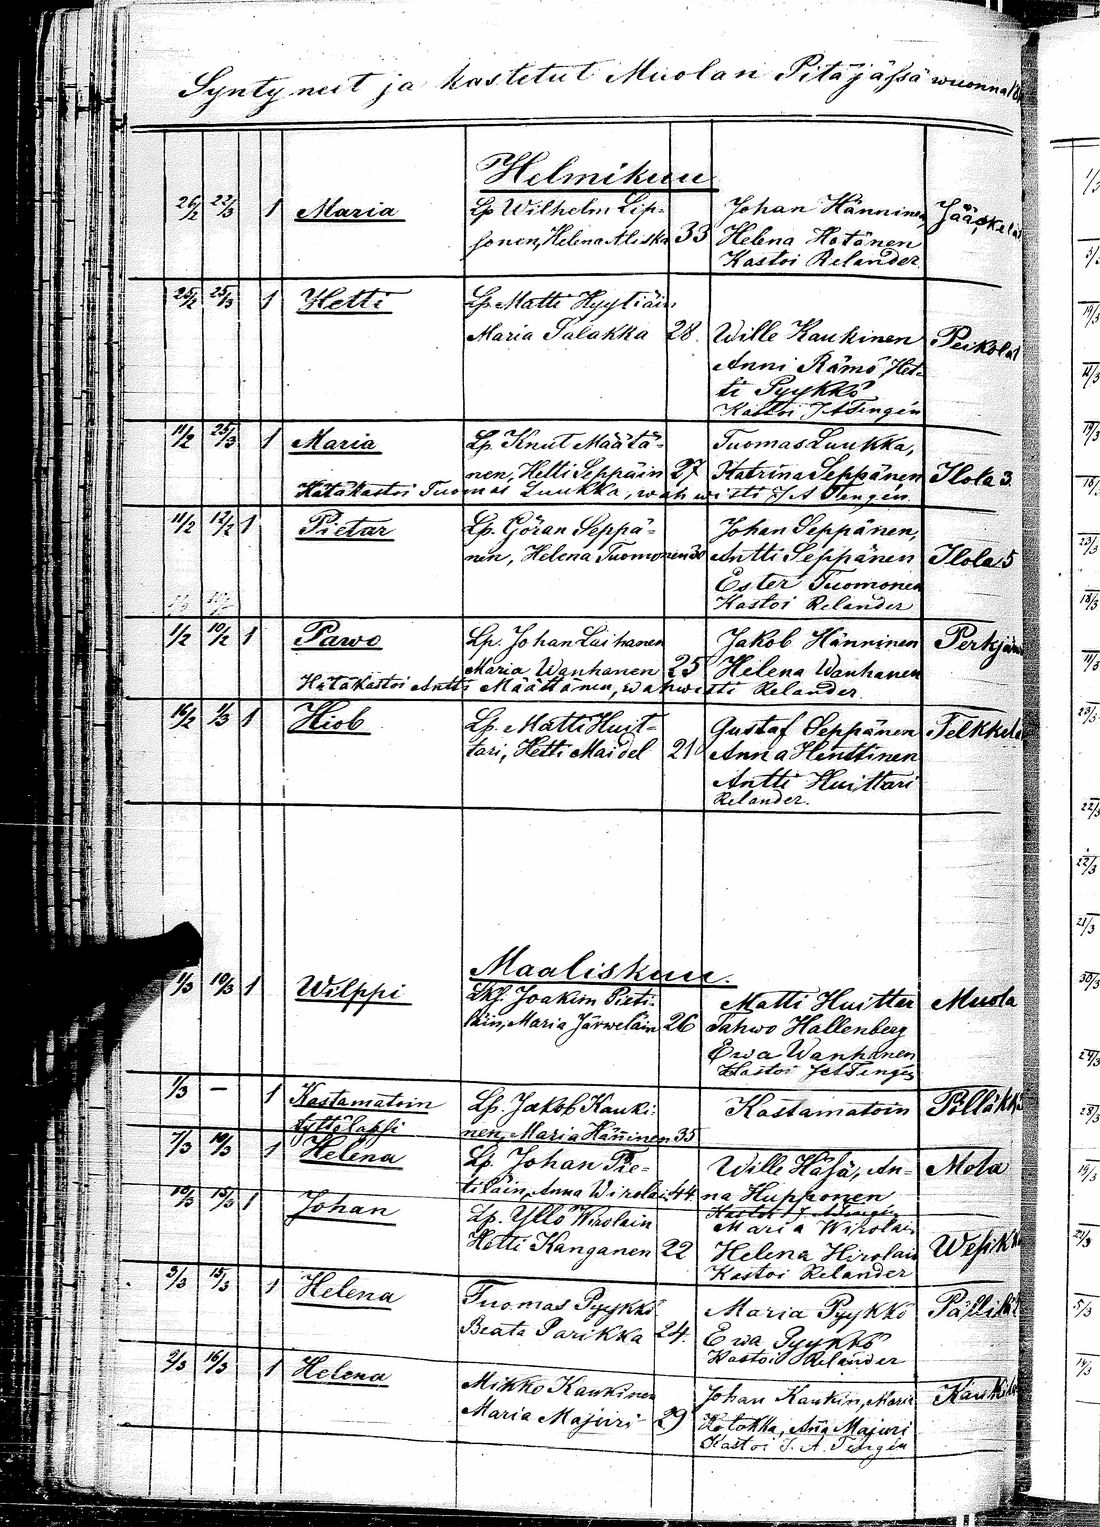 Syntyneet ja kastetut Muolan Pitäjässä wuonna
Helmikuu
26/2 22/3 1 Maria Lp Wilhelm Lip- Johan Hänninen, Jääskelä
sonen, Helena Aliska 33 Helena Hotanen
Kastoi Relander
25/2 25/3 1 Hetti Lp. Matti Hyytiäin
Maria Salakka 28. Wille Kaukinen Peikola 1
Anni Rämö, Het-
ti Pyykkö
Kastoi J A Tengén
11/2 25/3 1 Maria Lp. Knut Määtä- Tuomas Luukka,
nen, Helli Seppäin 27 Katrina Seppänen Ilola 3.
Hätäkastoi Tuomas Luukka, wahwisti J A Tengén.
11/2 12/2 1 Pietar Lp. Göran Seppä- Johan Seppänen,
nen, Helena Tuomonen 30 Antti Seppänen Ilola 5
Ester Tuomonen
Kastoi Relander
1/2 10/2 1 Pawo Lp. Johan Laihanen Jakob Hänninen Perkjärw
Maria Wanhanen 25 Helena Wanhanen
Hätäkastoi Antti Määttänen, wahwisti Relander.
1/3 1 Hiob Lp. Matti Huit- Gustaf Seppänen Telkkela
tari, Hetti Maidel 21 Anna Henttinen
Antti Huittari
Relander.
Maaliskuu.
1/3 10/3 1 Wilppi Lkj. Joakim Pieti- Matti Huitter Muola
läin, Maria Järweläin 26 Tahwo Hallenberg
Ewa Wanhanen
Kastoi J A Tengén
1/3 — 1 Kastamatoin Lp. Jakob Kauki- Kastamatoin Pölläkk
tyttölapsi nen, Maria Hänninen 35
7/3 10/3 1 Helena Lp. Johan Pie- Wille Häsä, An- Mola
tiläin, Anna Wirolai 44 na Hupponen
Kastoi J A Tengén
10/3 15/3 1 Johan Lp. Yllö Wirolain Maria Wirolai
Hetti Kanganen 22 Helena Hirolain Wesikk
Kastoi Relander
3/3 15/3 1 Helena Tuomas Pyykkö Maria Pyykkö Pällilä
Beata Parikka 24. Ewa Pyykkö
Kastoi Relander
2/3 16/3 1 Helena Mikko Kaukinen Johan Kaukin, Maria Kaukila
Maria Majuri 29 Kotokka, Anna Majuri
Kastoi J. A. Tengén